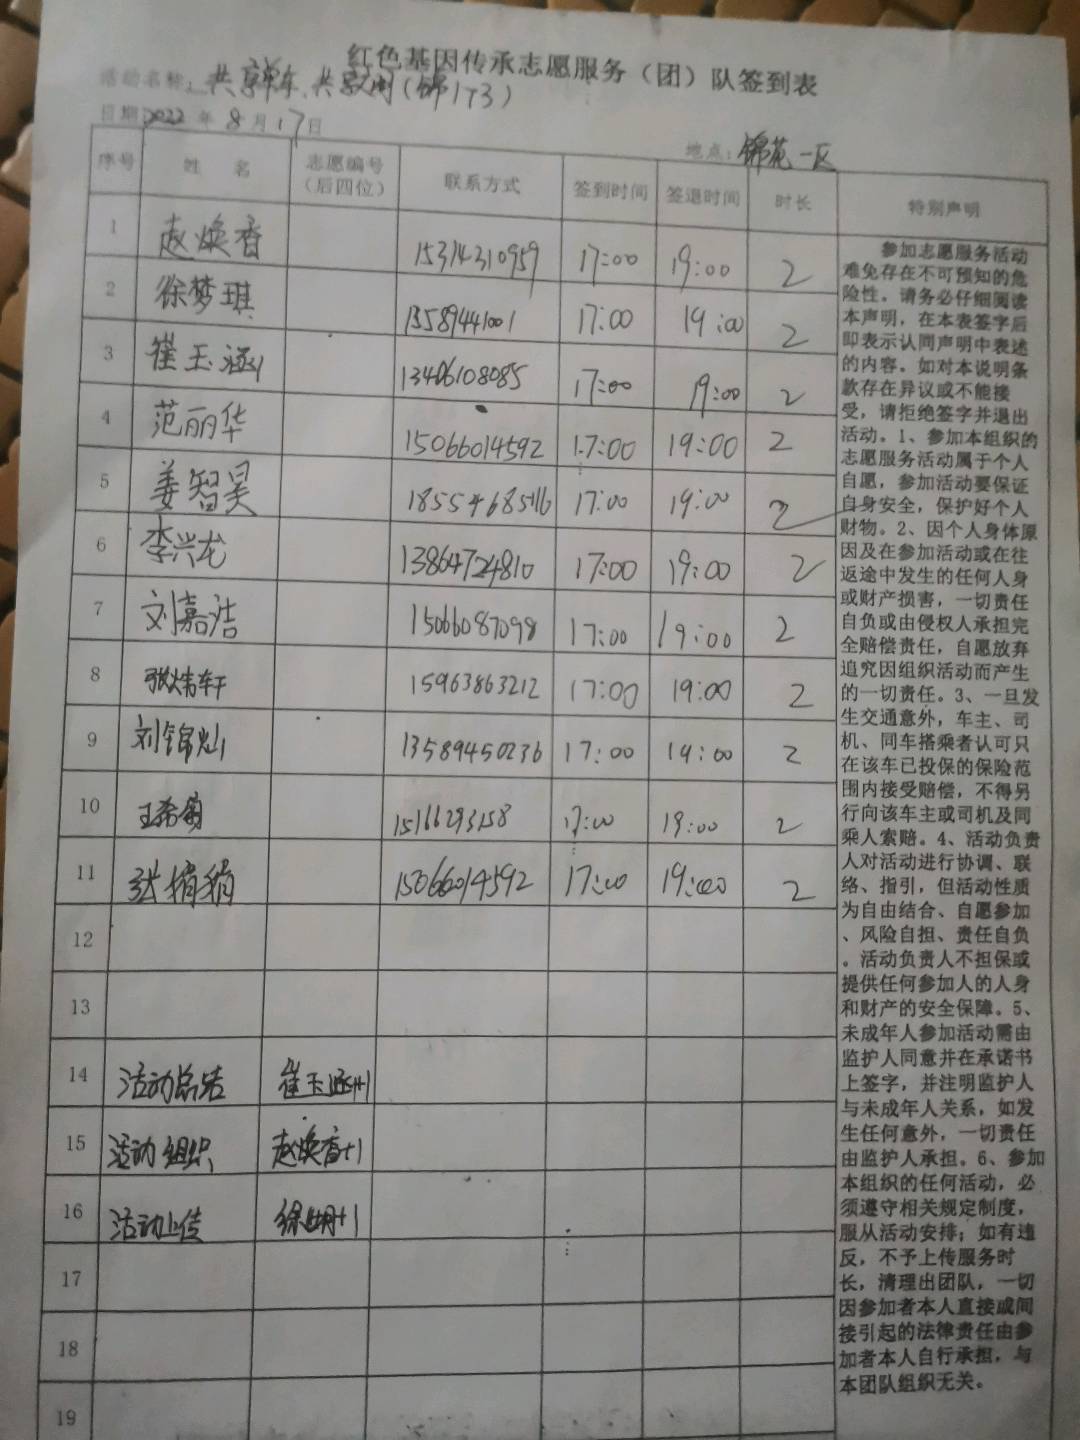 红色基因传承志愿服务（团）队签到表
活动名称：共享单车、共享文明（锦1T3）
日期2022年8月17日
地点：锦花一区
序号 姓 名 志愿编号（后四位） 联系方式 签到时间 签退时间 时长 特别声明
1 赵焕香 15314310959 17:00 19:00 2
2 徐梦琪 13589441001 17:00 19:00 2
3 崔玉涵 13406108085 17:00 19:00 2
4 范丽华 15066014592 17:00 19:00 2
5 姜智昊 17:00 19:00 2
6 李兴龙 13864724810 17:00 19:00 2
7 刘嘉洁 15066087098 17:00 19:00 2
8 15963863212 17:00 19:00 2
9 刘锦灿 13589450236 17:00 19:00 2
10 17:00 19:00 2
11 张梢梢 15066014592 17:00 19:00 2
12
13
14 活动总结 崔玉涵+1
15 活动组织 赵焕香+1
16 活动上传
17
18
19
参加志愿服务活动
难免存在不可预知的危
险性。请务必仔细阅读
本声明，在本表签字后
即表示认同声明中表述
的内容。如对本说明条
款存在异议或不能接
受，请拒绝签字并退出
活动。1、参加本组织的
志愿服务活动属于个人
自愿，参加活动要保证
自身安全，保护好个人
财物。2、因个人身体原
因及在参加活动或在往
返途中发生的任何人身
或财产损害，一切责任
自负或由侵权人承担完
全赔偿责任，自愿放弃
追究因组织活动而产生
的一切责任。3、一旦发
生交通意外，车主、司
机、同车搭乘者认可只
在该车已投保的保险范
围内接受赔偿，不得另
行向该车主或司机及同
乘人索赔。4、活动负责
人对活动进行协调、联
络、指引，但活动性质
为自由结合、自愿参加
、风险自担、责任自负
。活动负责人不担保或
提供任何参加人的人身
和财产的安全保障。5、
未成年人参加活动需由
监护人同意并在承诺书
上签字，并注明监护人
与未成年人关系，如发
生任何意外，一切责任
由监护人承担。6、参加
本组织的任何活动，必
须遵守相关规定制度，
服从活动安排；如有违
反，不予上传服务时
长，清理出团队，一切
因参加者本人直接或间
接引起的法律责任由参
加者本人自行承担，与
本团队组织无关。